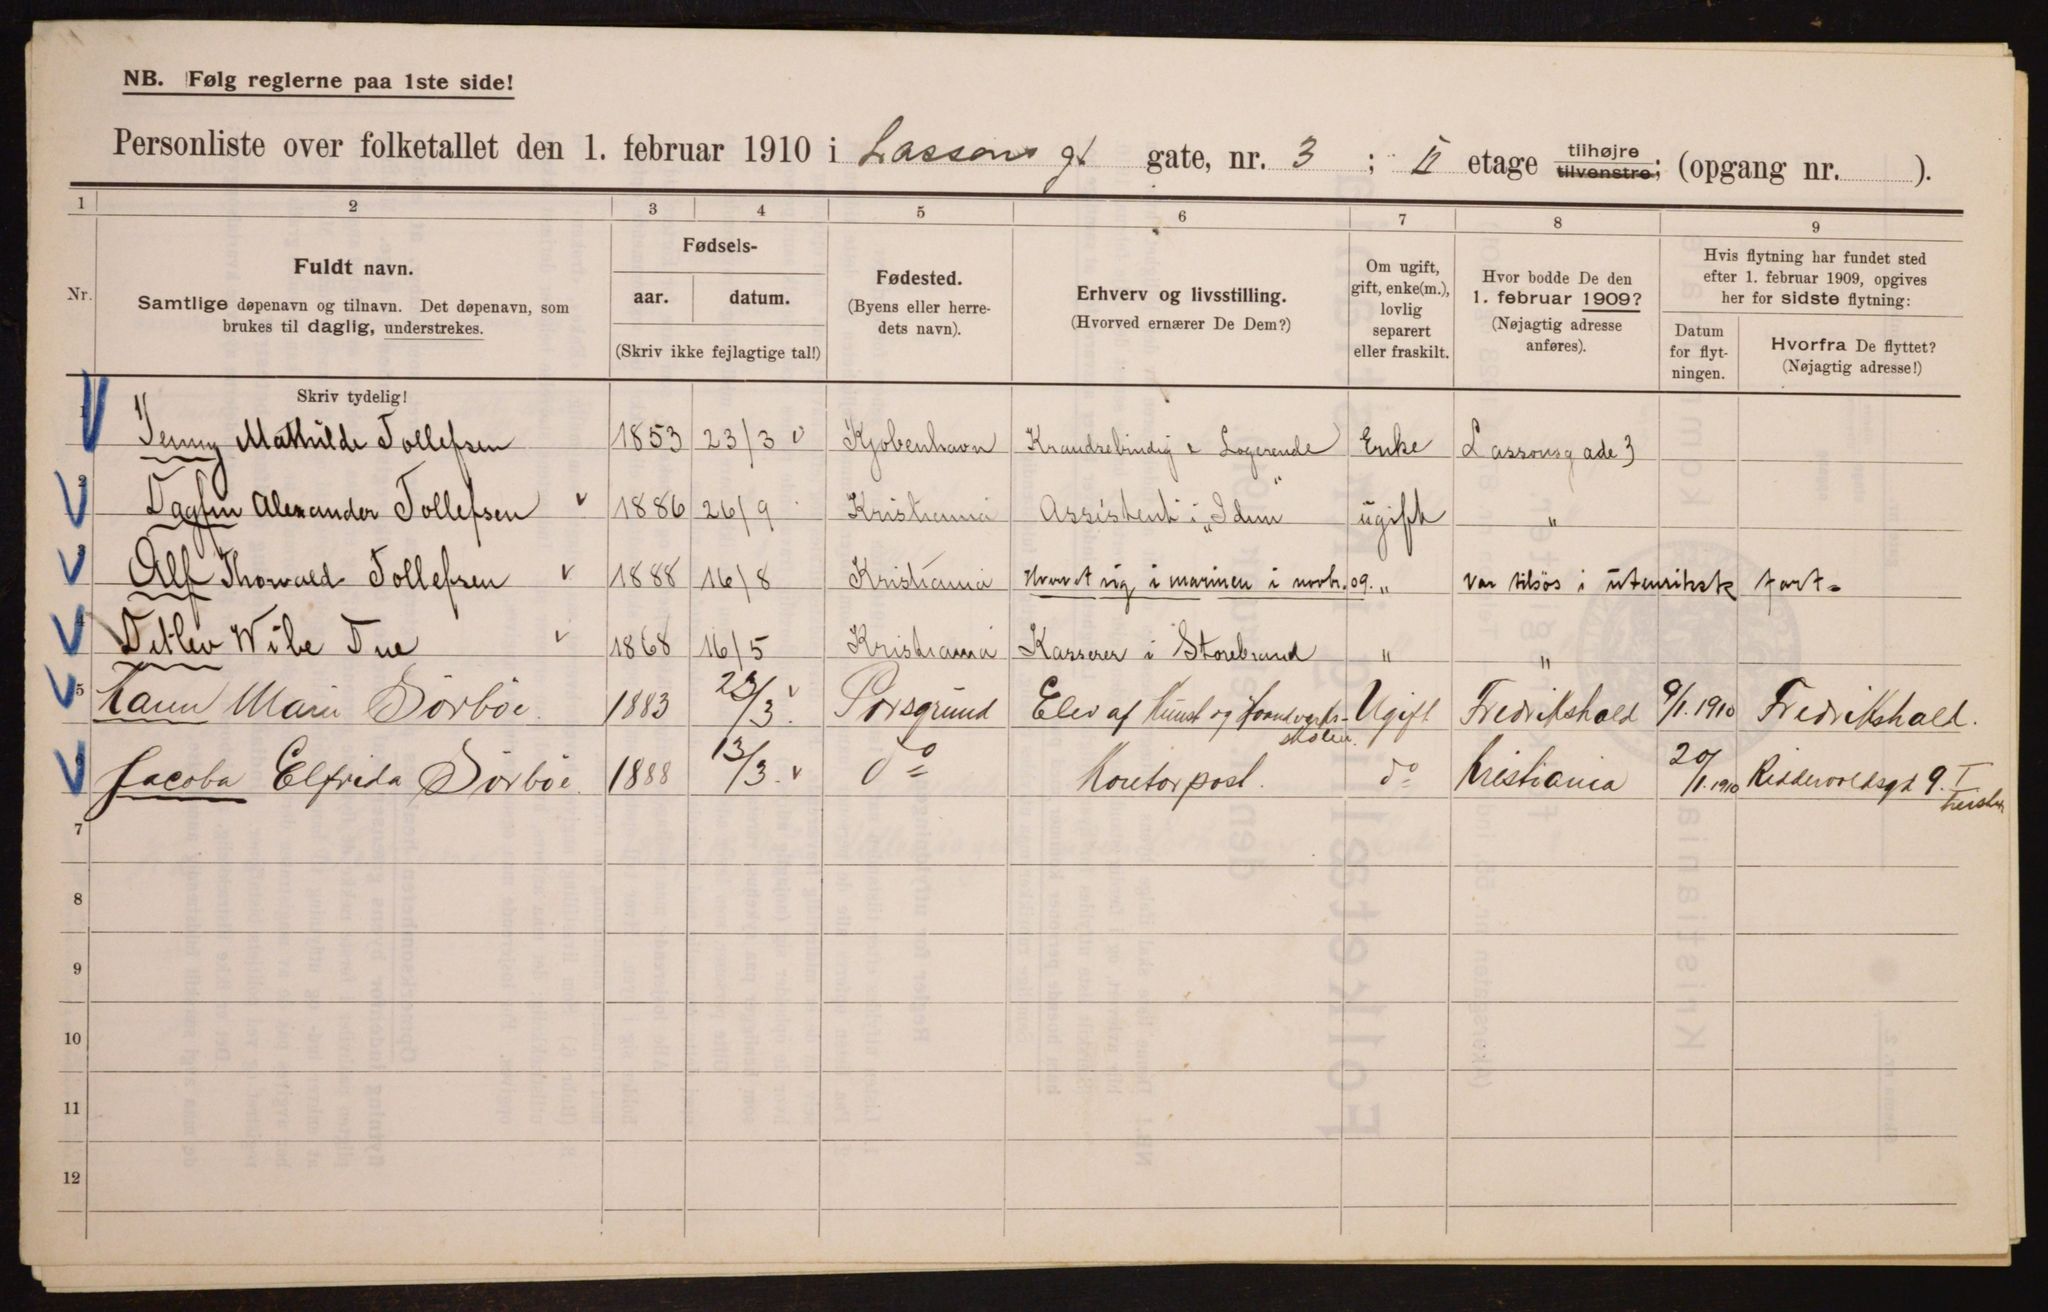 NB. Følg reglerne paa 1ste side!
Personliste over folketallet den 1. februar 1910 i Lassons gt gate, nr. 3 ; II etage tilhøjre tilvenstre; (opgang nr. ).
1 2 3 4 5 6 7 8 9
Nr.
Fuldt navn.
Samtlige døpenavn og tilnavn. Det døpenavn, som
brukes til daglig, understrekes.
Fødsels-
aar. datum.
(Skriv ikke fejlagtige tal!)
Fødested.
(Byens eller herre-
dets navn).
Erhverv og livsstilling.
(Hvorved ernærer De Dem?)
Om ugift,
gift, enke(m.),
lovlig
separert
eller fraskilt.
Hvor bodde De den
1. februar 1909?
(Nøjagtig adresse
anføres).
Hvis flytning har fundet sted
efter 1. februar 1909, opgives
her for sidste flytning:
Datum
for flyt-
ningen.
Hvorfra De flyttet?
(Nøjagtig adresse!)
Skriv tydelig!
1 Jenny Mathilde Tollefsen 1853 23/3 Kjøbenhavn Krandsebindig & Logerende Enke Lassonsgade 3
2 Dagfin Alexander Tollefsen 1886 26/9 Kristiania Assistent i „Idun" ugift "
3 Alf Thorvald Tollefsen 1888 16/8 Kristiania Hvervet sig i marinen i novbr. 09. " var tilsøs i utenriksk fart
4 Ditlev Wibe Due 1868 16/5 Kristiania Kasserer i Storebrand " "
5 Karen Marie Sörböe 1883 23/3 Porsgrund Elev af Kunst og Haandverks-
skolen. Ugift Fredrikshald 9/1.1910 Fredrikshald.
6 Jacoba Elfrida Sörböe. 1888 13/3 do Kontorpost. do Kristiania 20/1.1910 Riddervoldsgt 9. I
7
8
9
10
11
12